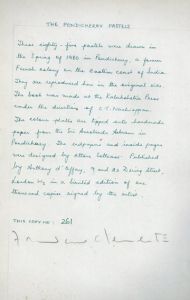 THE PONDICHERRY PASTELS
These eighty five pastels were drawn in
the Spring of 1980 in Pondicherry, a former
French colony on the Eastern coast of India.
They are reproduced here in the original size.
The book was made at the Kalakshetra Press
under the direction of C.T. Nachiappan.
The colour plates are tipped onto handmade
paper from the Sri Aurobindo Ashram in
Pondicherry. The endpapers and inside pages
were designed by
Published
by Anthony d'Offay, 9 and 23 Dering Street,
London W1 in a limited edition of one
thousand copies signed by the artist.
THIS COPY NO: 261
Francesco Clemente